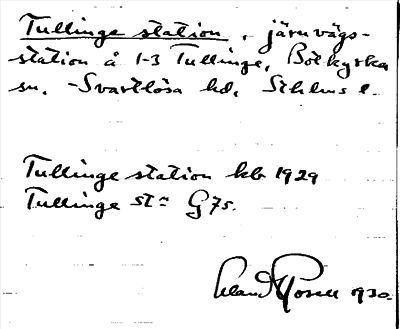 Tullinge station, järnvägs-
station å 1-3 Tullinge, Botkyrka
sn. -Svartlösa hd. Sthlms l.
Tullinge station kb 1929
Tullinge stⁿ G75.
1930.